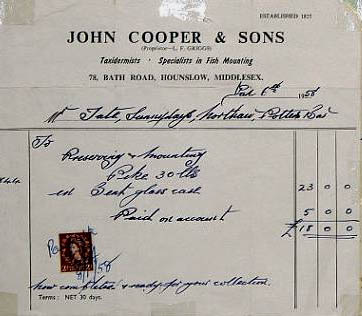 ESTABLISHED 1825
JOHN COOPER & SONS
(Proprietor—L. F. GRIGGS)
Taxidermists · Specialists in Fish Mounting
78, BATH ROAD, HOUNSLOW, MIDDLESEX.
6th 1958
Mr Tate, Sunnydays, Northaw, Potters Bar
To
Preserving & Mounting
Pike 30 lbs
in Bent glass case 23 0 0
Paid on account 5 0 0
£18 0 0
/58
now completed & ready for your collection.
Terms: NET 30 days.